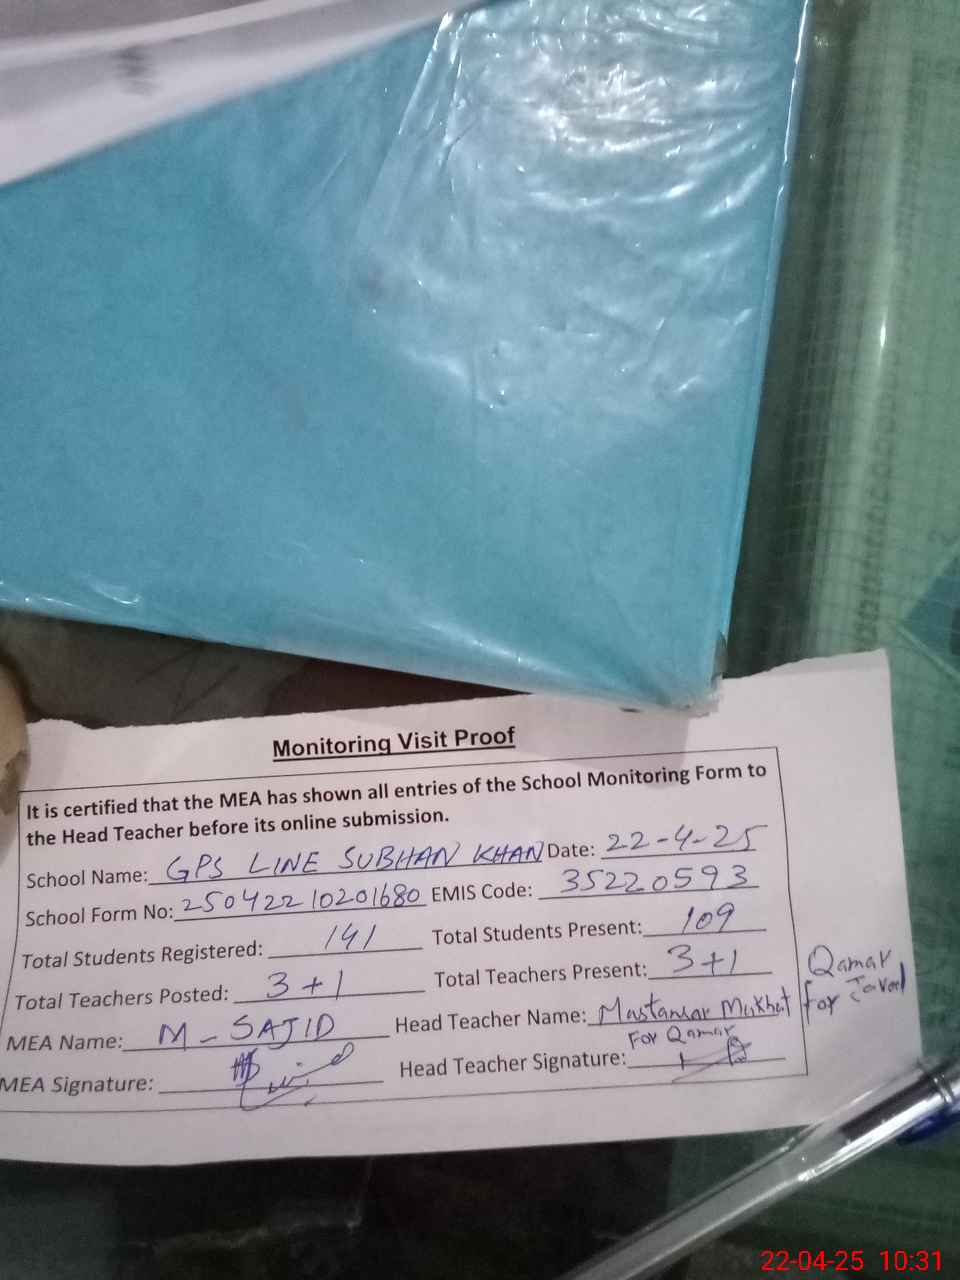 Monitoring Visit Proof
It is certified that the MEA has shown all entries of the School Monitoring Form to
the Head Teacher before its online submission.
School Name: GPS LINE SUBHAN KHAN Date: 22-4-25
School Form No: 25042210201680 EMIS Code: 35220593
Total Students Registered: 141 Total Students Present: 109
Total Teachers Posted: 3+1 Total Teachers Present: 3+1
MEA Name: M-SAJID Head Teacher Name: Mastansar
For Qamar Javed
MEA Signature: Head Teacher Signature: For Qamar
22-04-25 10:31